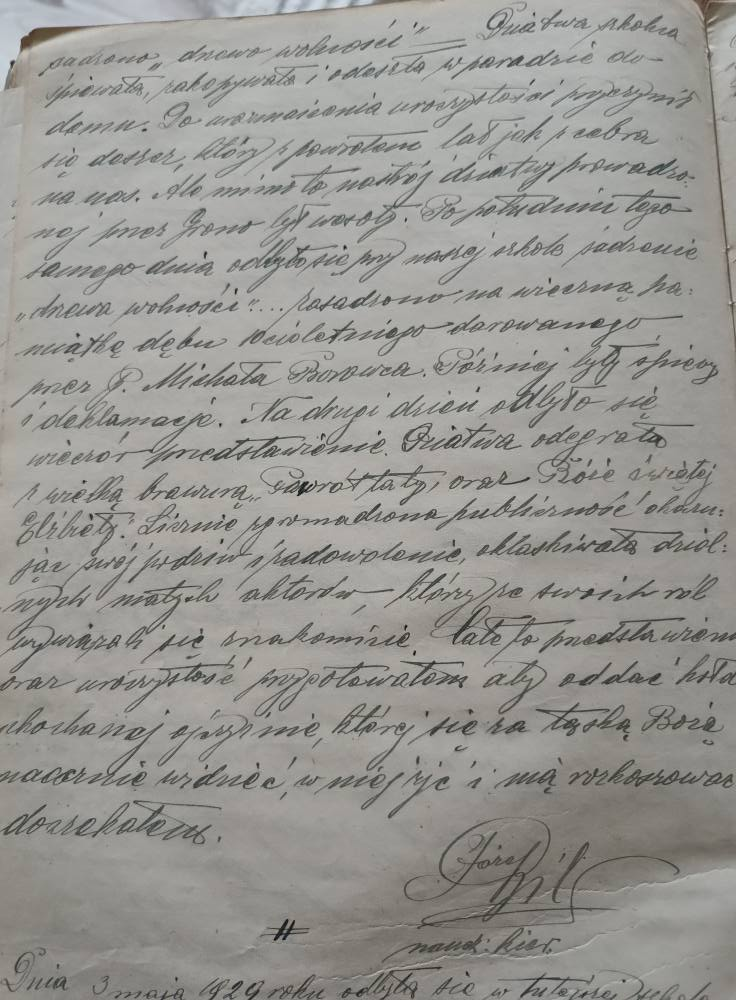 sadzono „drzewo wolności" — Dziatwa szkolna
śpiewała, zakopywała i odeszła w paradzie do
domu. Do urozmaicenia uroczystości przyczynił
się deszcz, który z powrotem lał jak z cebra
na nas. Ale mimo to, nastrój dziatwy prowadzo-
nej przez Grono był wesoły. Po południu tego
samego dnia odbyło się przy naszej szkole sadzenie
„drzewa wolności"... Posadzono na wieczną pa-
miątkę dębu 10cioletniego darowanego
przez P. Michała Borowca. Później były śpiewy
i deklamacje. Na drugi dzień odbyło się
wieczór przedstawienie. Dziatwa odegrała
z wielką brawurą „Powrót taty, oraz Róże świętej
Elżbiety." Licznie zgromadzona publiczność okazu-
jąc swój podziw i zadowolenie, oklaskiwała dziel-
nych małych aktorów, którzy ze swoich ról
wywiązali się znakomicie. Całe to przedstawieni
oraz uroczystość przygotowałem aby oddać hołd
ukochanej ojczyźnie, której się za łaską Bożą
nacznie widzieć, w niej żyć i nią rozkoszować
doczekałem.
Józef Bil
naucz: kier.
Dnia 3 maja 1929 roku odbyła się w tutejszej szkole